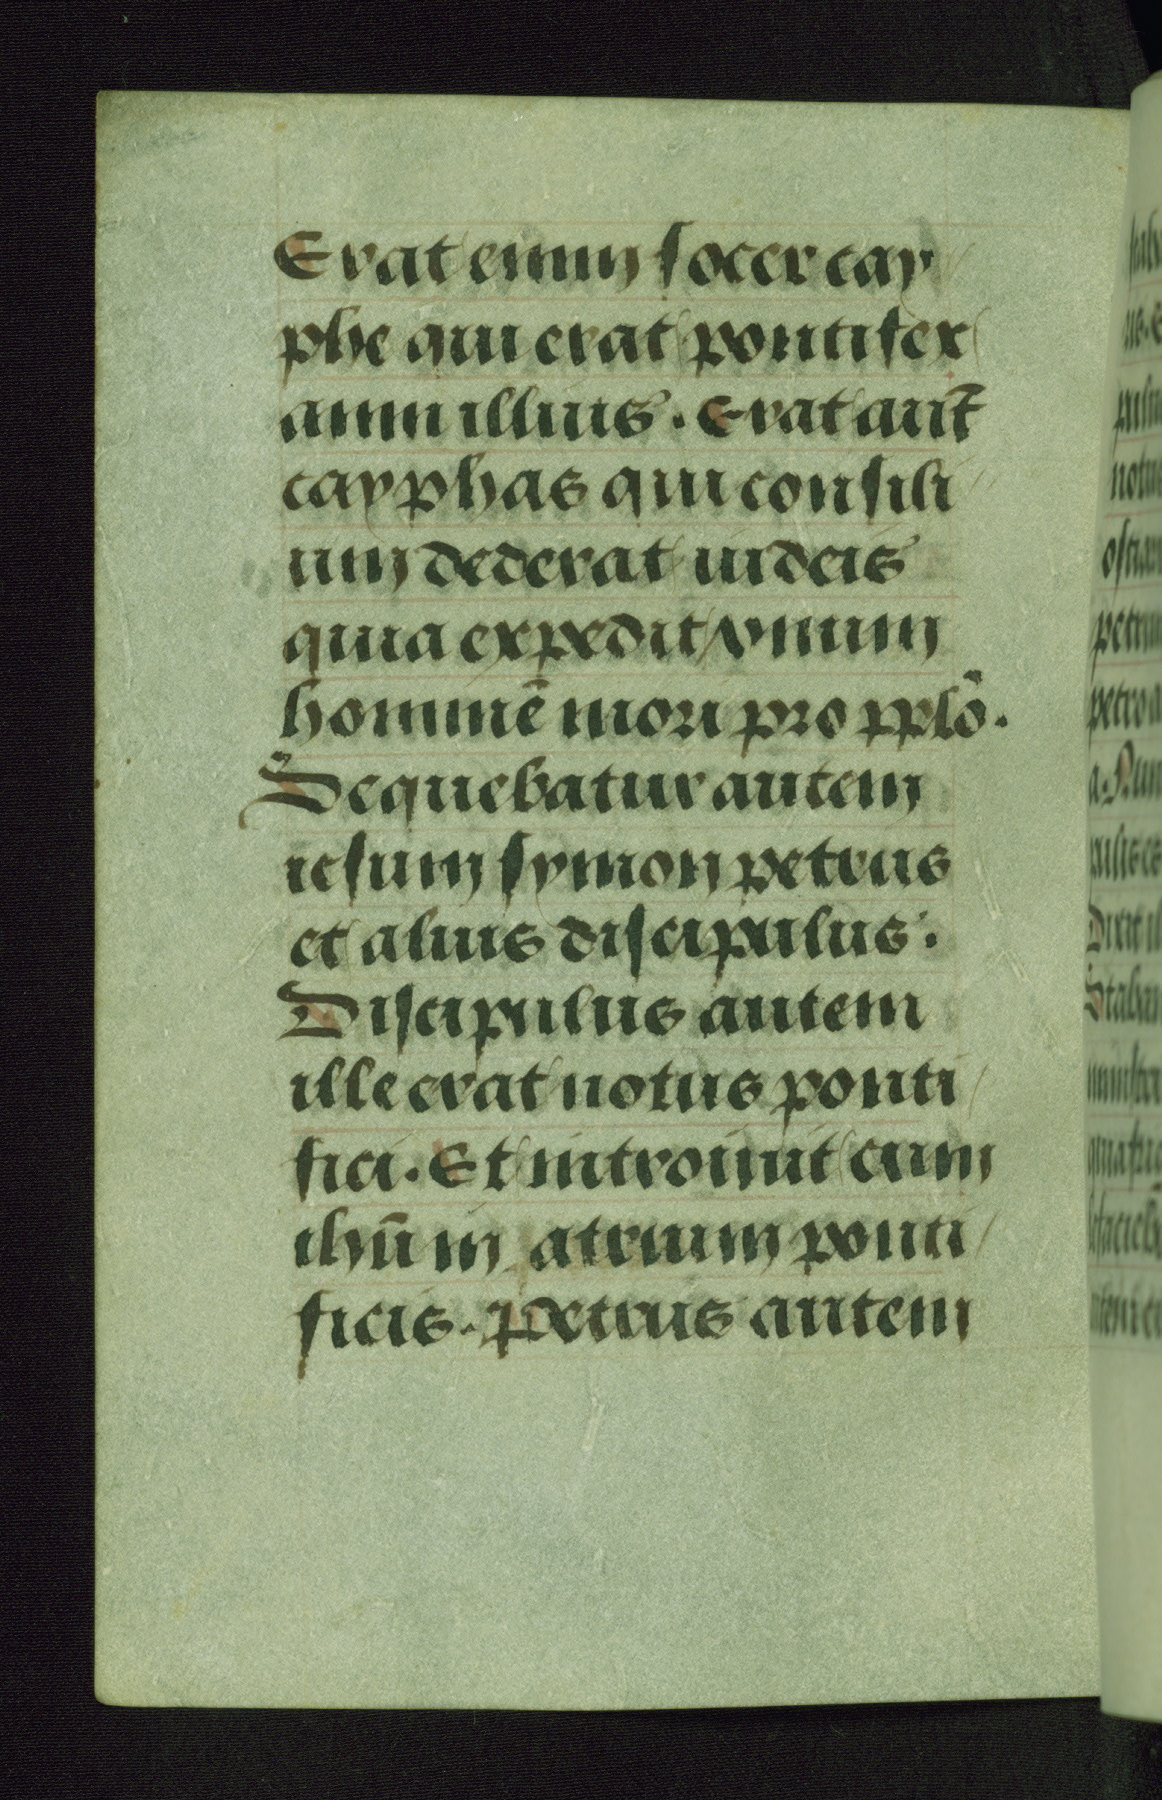 Erat enim socer cay
phe qui erat pontifex
anni illius. Erat aut̄
cayphas qui consili
um dederat iudeis
quia expedit vnum
hominē mori pro pplō.
Sequebatur autem
iesum symon petrus
et alius discipulus.
Discipulus autem
ille erat notus ponti
fici. Et introiuit cum
ihū in atrium ponti
ficis. Petrus autem